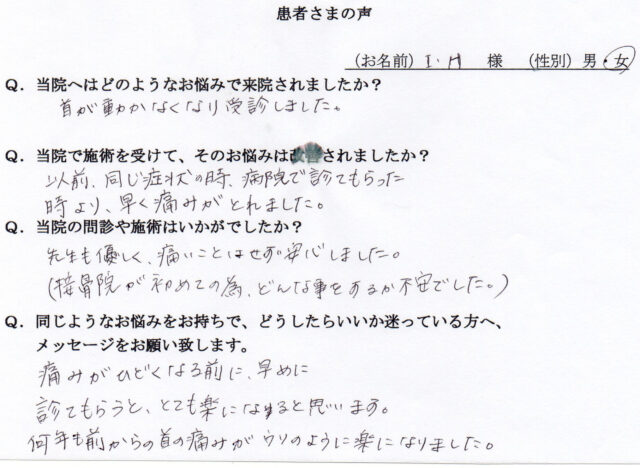 患者さまの声
(お名前) I・H 様 (性別) 男・女
Q．当院へはどのようなお悩みで来院されましたか？
首が動かなくなり受診しました。
Q．当院で施術を受けて、そのお悩みは改善されましたか？
以前、同じ症状の時、病院で診てもらった
時より、早く痛みがとれました。
Q．当院の問診や施術はいかがでしたか？
先生も優しく、痛いことはせず安心しました。
(接骨院が初めての為、どんな事をするか不安でした。)
Q．同じようなお悩みをお持ちで、どうしたらいいか迷っている方へ、
メッセージをお願い致します。
痛みがひどくなる前に、早めに
診てもらうと、とても楽になると思います。
何年も前からの首の痛みがウソのように楽になりました。